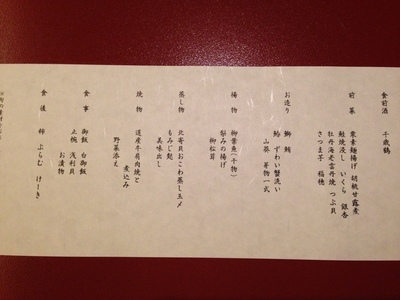 食前酒 千歳鶴
前菜 素麺揚げ 胡桃甘露煮
鮭焼浸し いくら 銀杏
牡丹海老雲丹焼 つぶ貝
さつま子 稲穂
お造り 鰤 鮪
ずわい蟹洗い
山葵 芽物一式
揚物 柳葉魚(干物)
梨みの揚げ
柳松茸
蒸し物 北寄おこわ蒸し玉〆
もみじ麩
美味出し
焼物 道産牛肩肉焼と
煮込み
野菜添え
食事 御飯 白御飯
止椀 浅利貝
お漬物
食後 柿 ぷらむ けーき